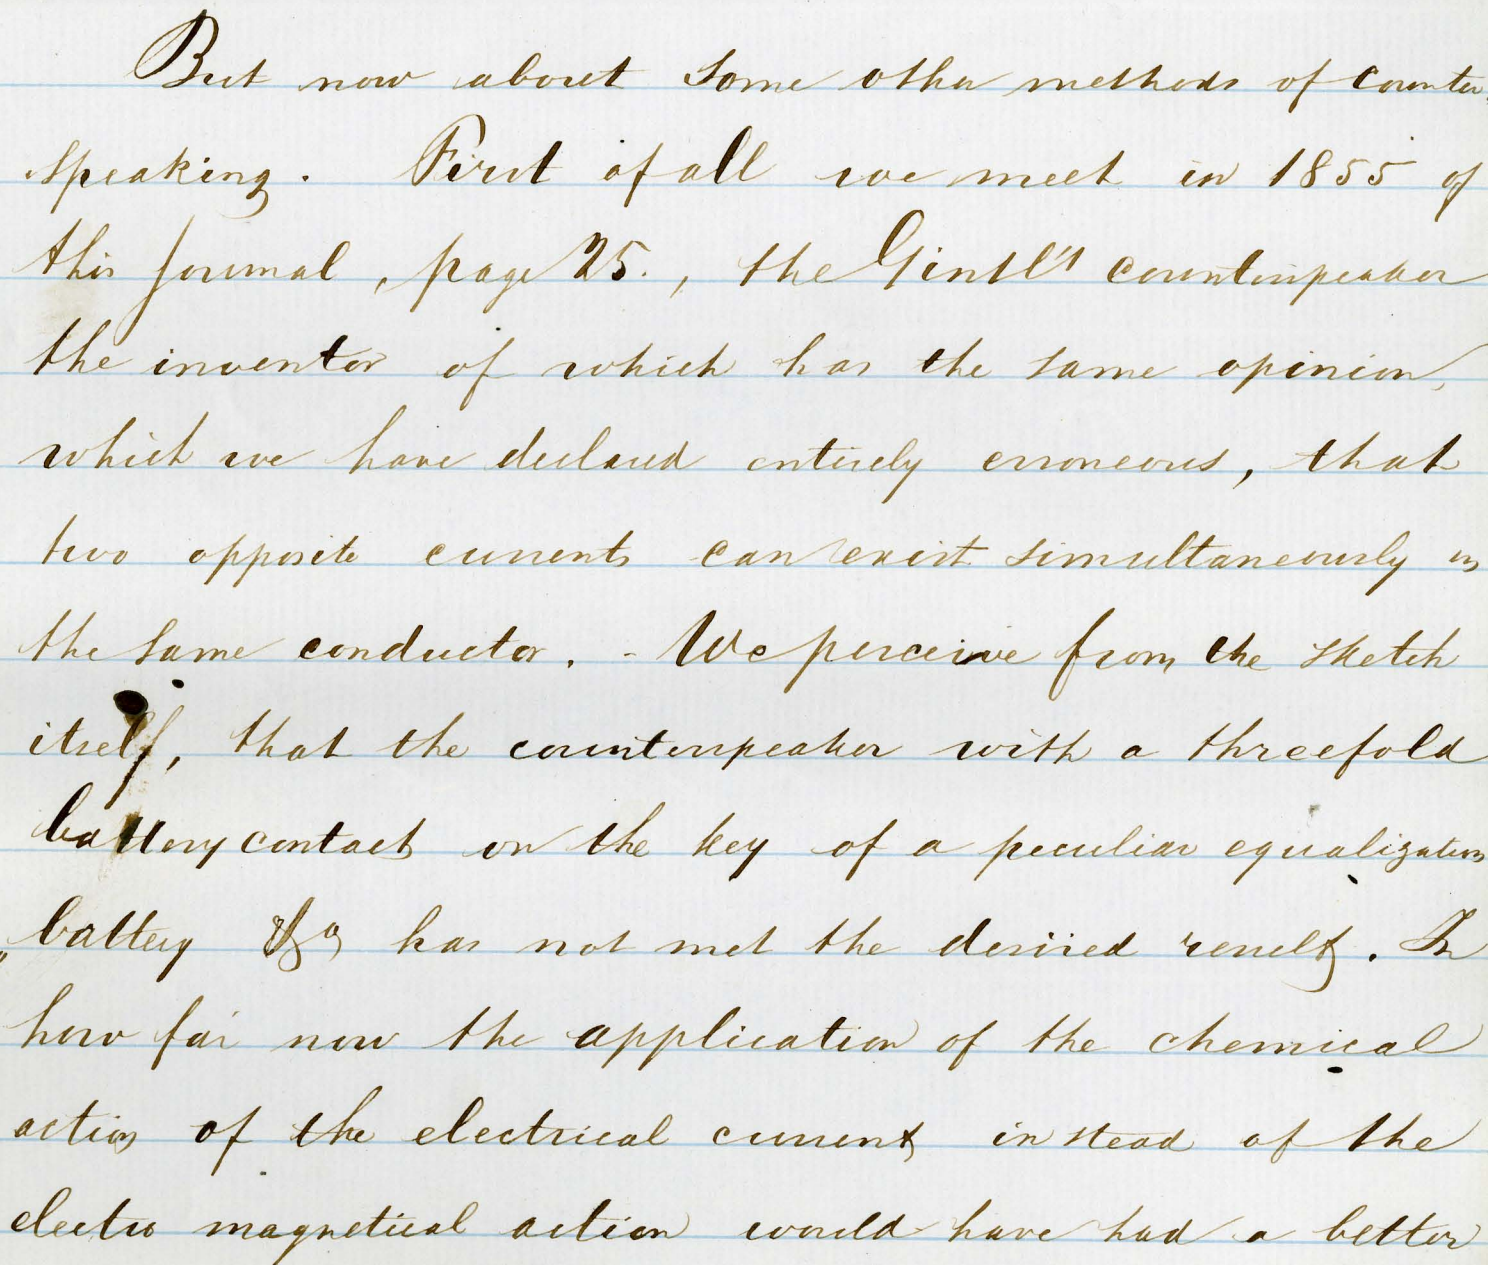 But now about some other methods of counter-
speaking. First of all we meet in 1855 of
this journal, page 25., the Gintl's counterspeaker
the inventor of which has the same opinion,
which we have declared entirely erroneous, that
two opposite currents can exist simultaneously in
the same conductor. - We perceive from the sketch
itself, that the counterspeaker with a threefold
battery contact on the key of a peculiar equalization
battery &c has not met the desired result. In
how far now the application of the chemical
action of the electrical current instead of the
electro magnetical action would have had a better